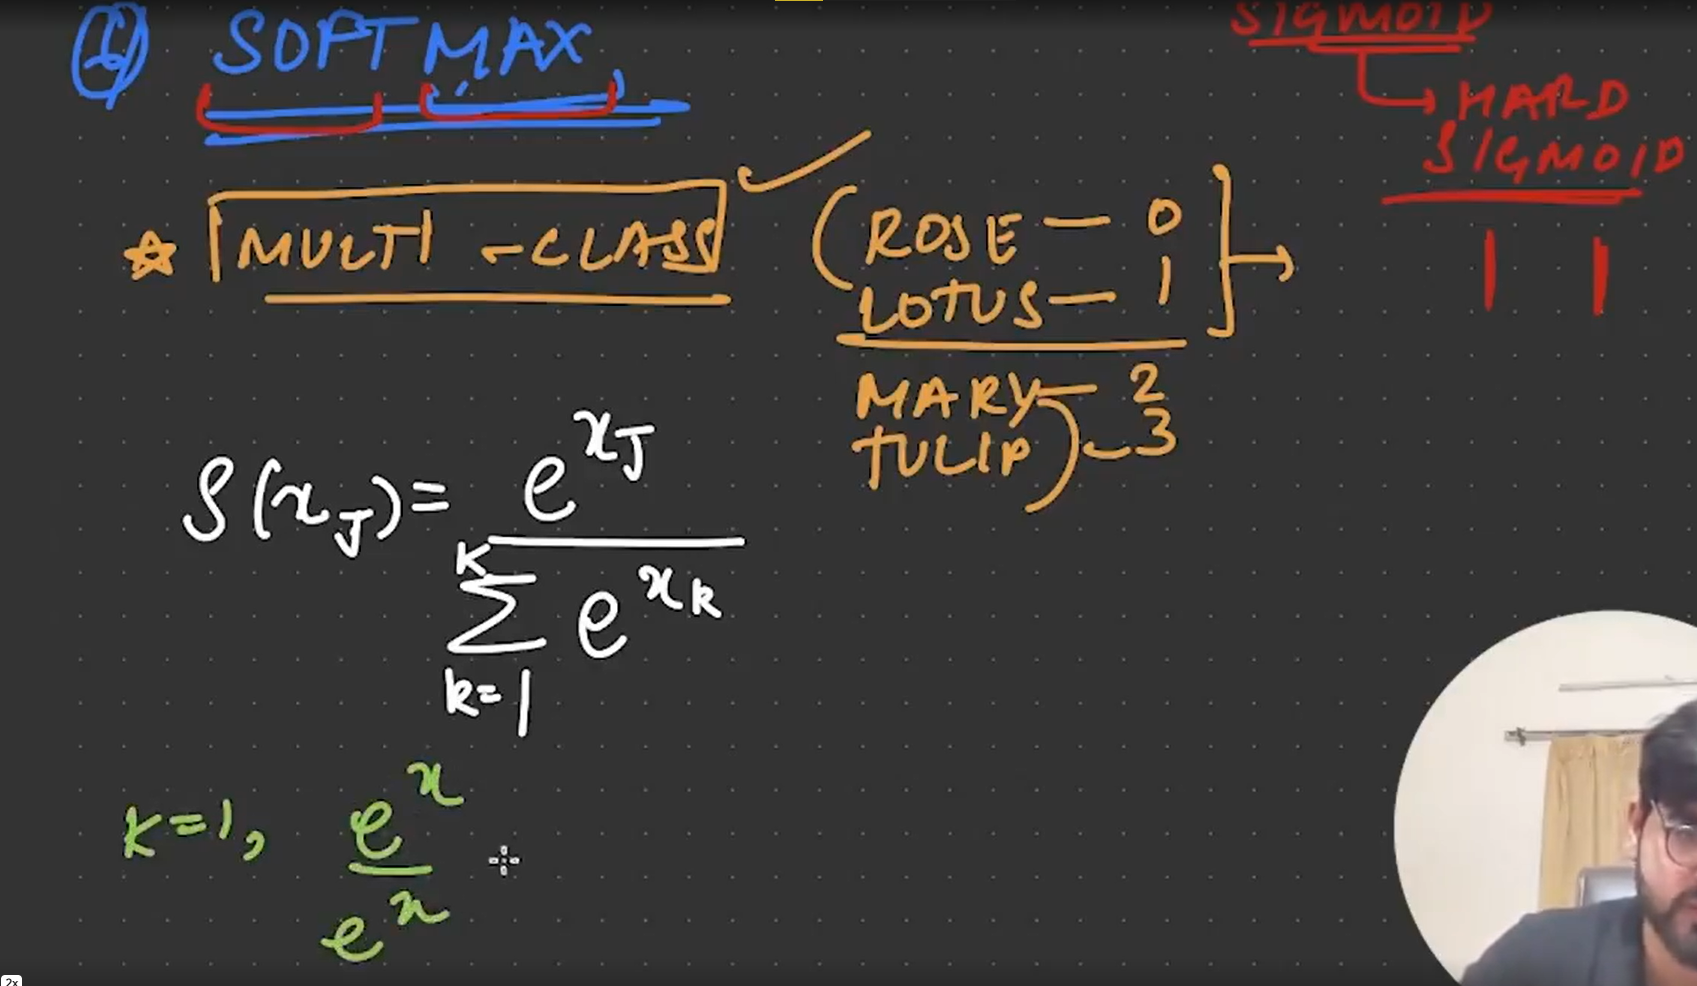 ⑥ SOFTMAX
SIGMOID
HARD
SIGMOID
☆ MULTI-CLASS ✓
(ROSE — 0
LOTUS — 1
MARY — 2
TULIP) — 3
S(x_J) = e^{x_J} / \sum_{k=1}^{K} e^{x_k}
K=1, e^x / e^x
2x